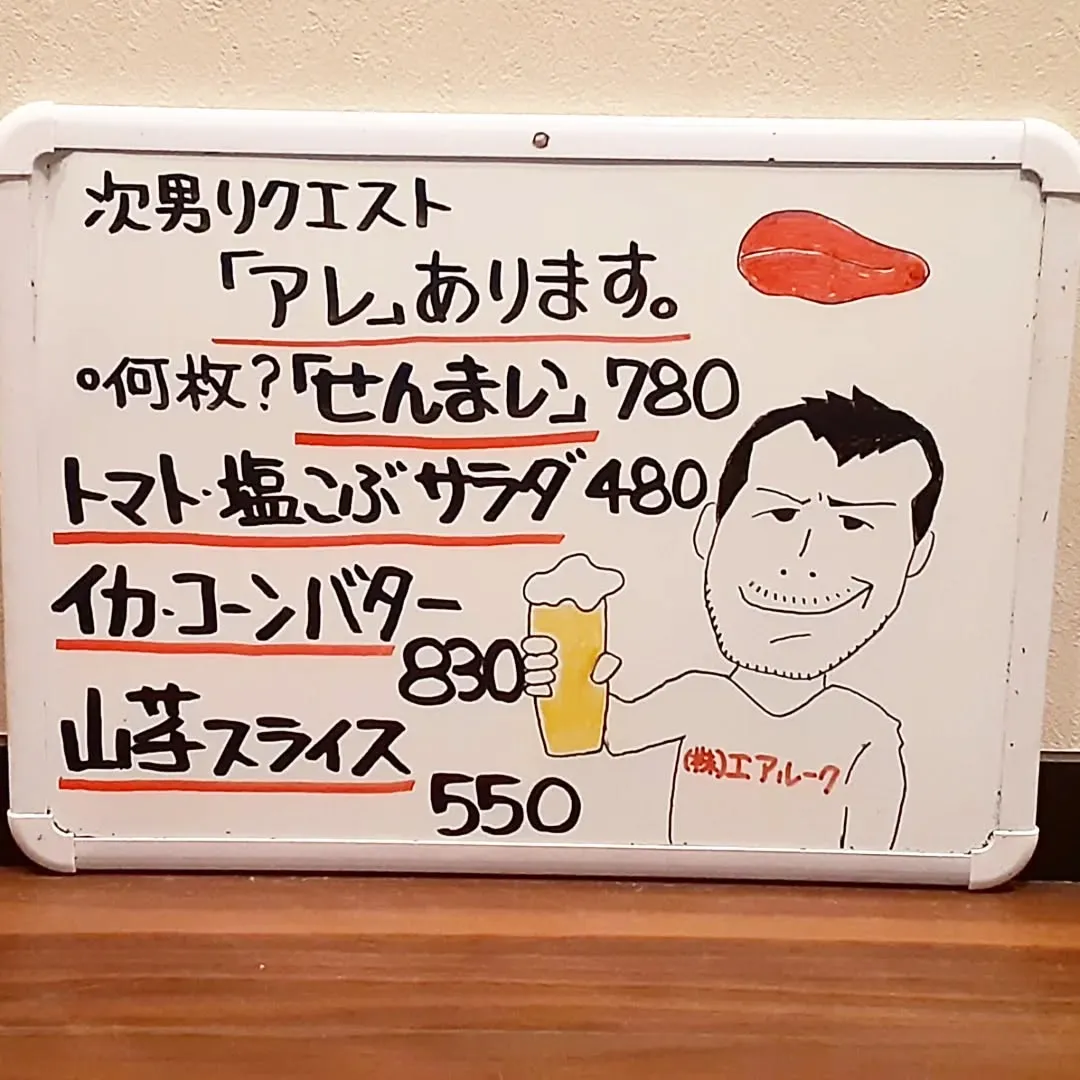 次男リクエスト
「アレ」あります。
°何枚?「せんまい」780
トマト・塩こぶサラダ 480
イカ・コーンバター
830
山芋スライス
550
(株)エアルーク